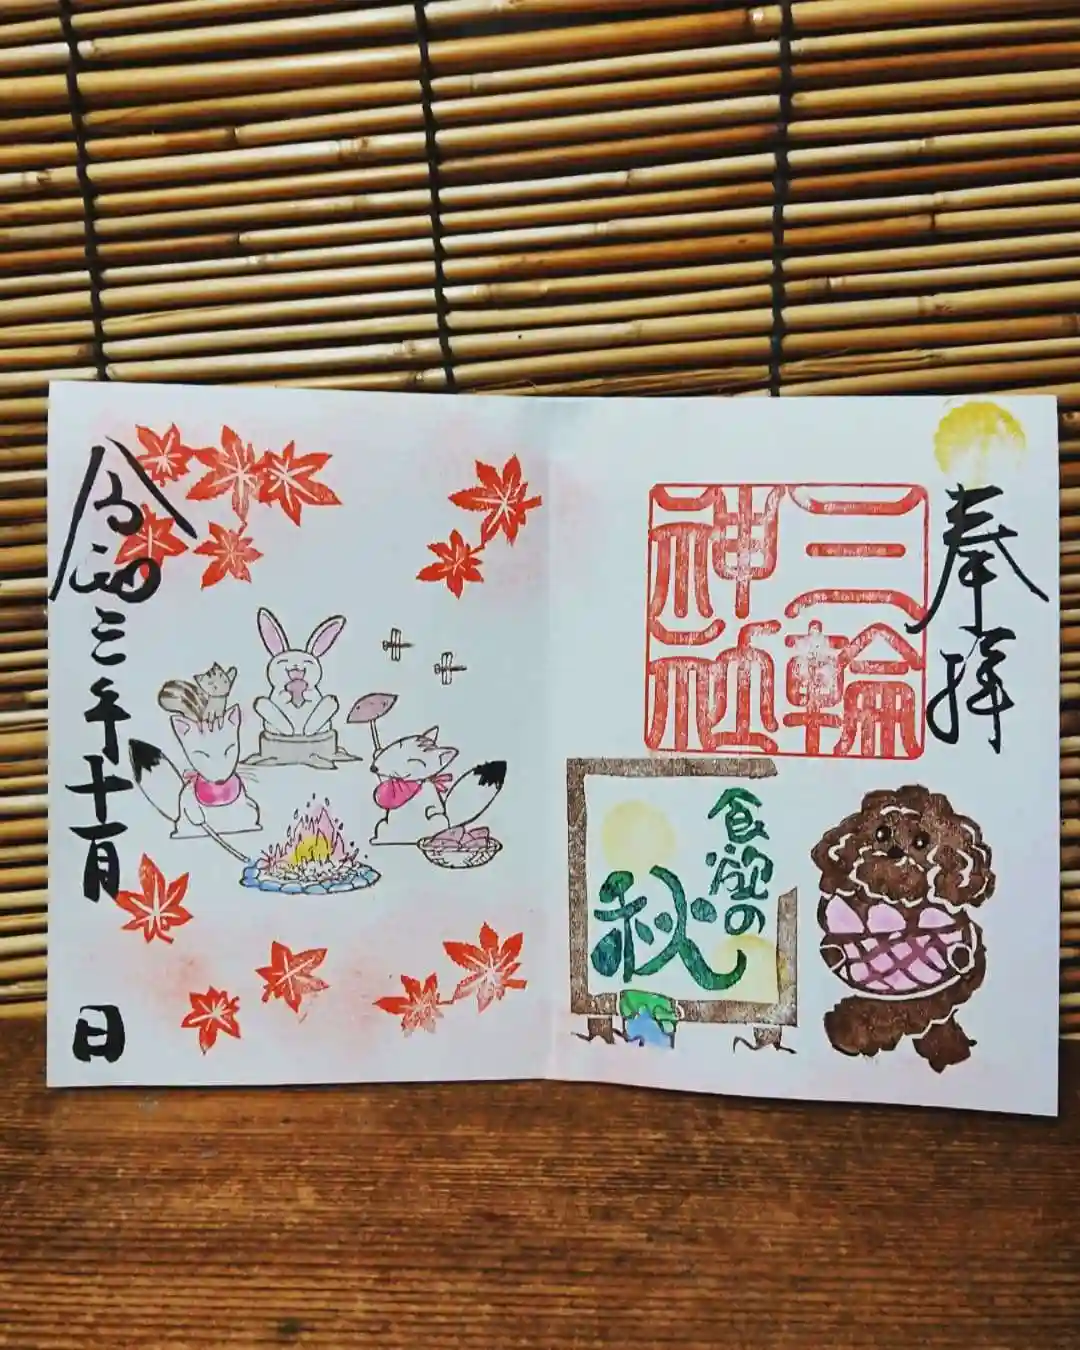 奉拝
三輪
神社
食欲の
秋
令和三年十一月　日